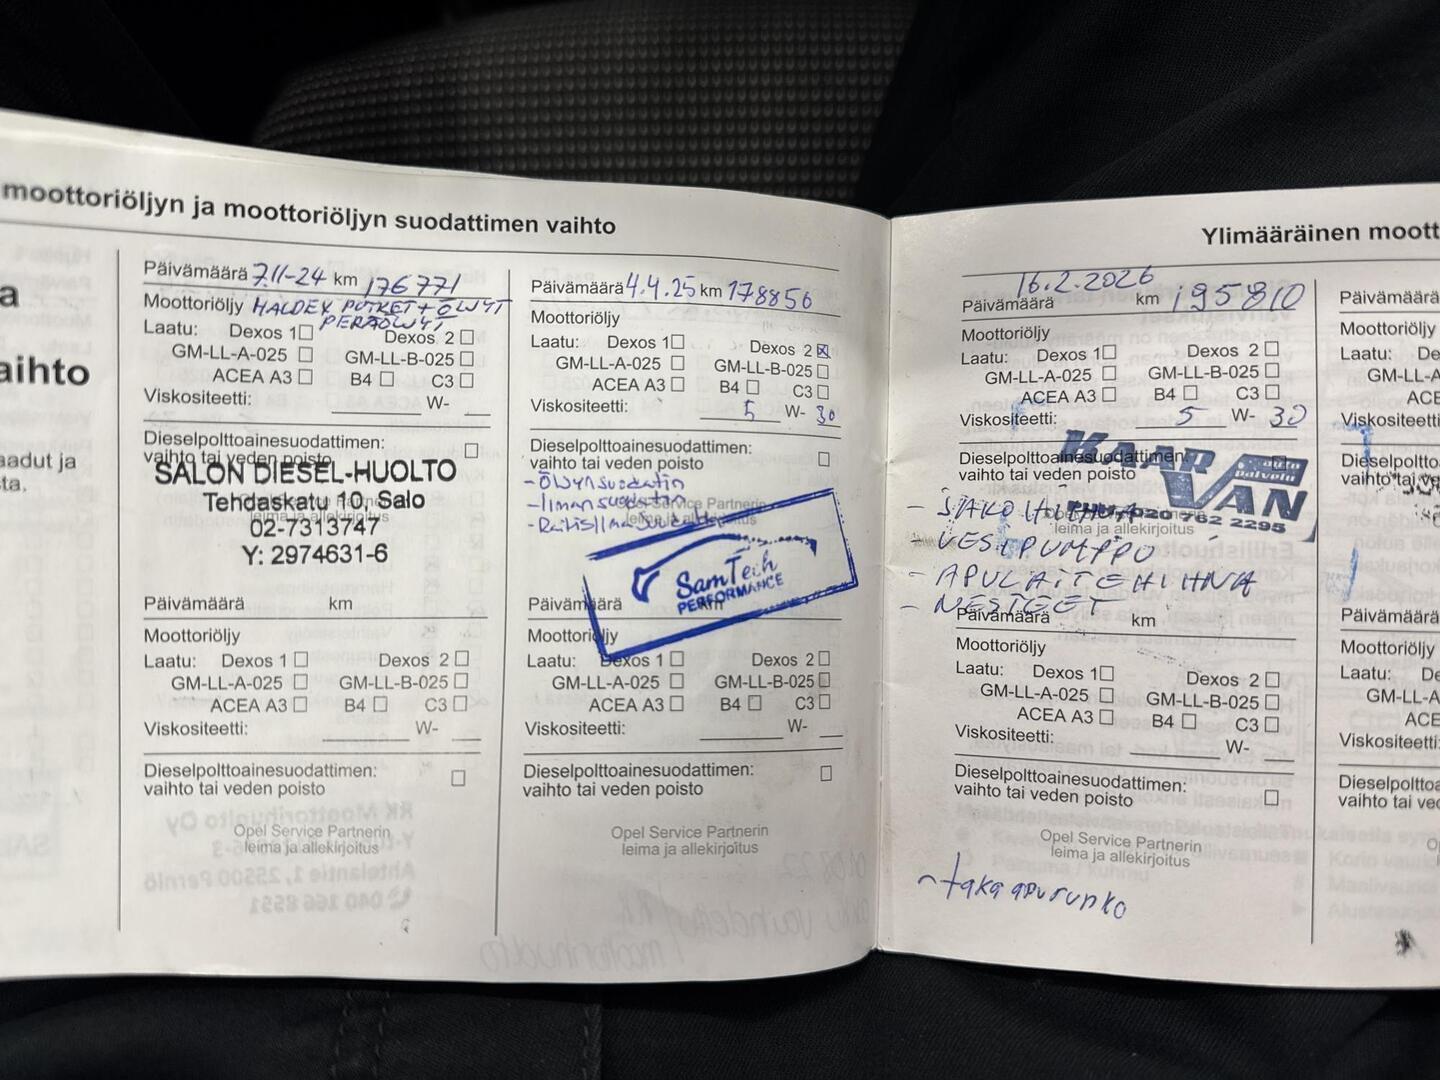 moottoriöljyn ja moottoriöljyn suodattimen vaihto
a
aihto
aadut ja
sta.
Päivämäärä 7.11-24 km 176771
Moottoriöljy HALDEX PUTKET + ÖLJYT
PERÄÖLJYT
Laatu: Dexos 1 Dexos 2
GM-LL-A-025 GM-LL-B-025
ACEA A3 B4 C3
Viskositeetti: W-
Dieselpolttoainesuodattimen:
vaihto tai veden poisto
SALON DIESEL-HUOLTO
Tehdaskatu 10, Salo
leima ja allekirjoitus
02-7313747
Y: 2974631-6
Päivämäärä km
Moottoriöljy
Laatu: Dexos 1 Dexos 2
GM-LL-A-025 GM-LL-B-025
ACEA A3 B4 C3
Viskositeetti: W-
Dieselpolttoainesuodattimen:
vaihto tai veden poisto
Opel Service Partnerin
leima ja allekirjoitus
Päivämäärä 4.4.25 km 178856
Moottoriöljy
Laatu: Dexos 1 Dexos 2
GM-LL-A-025 GM-LL-B-025
ACEA A3 B4 C3
Viskositeetti: 5 W- 30
Dieselpolttoainesuodattimen:
vaihto tai veden poisto
- Öljynsuodatin
- ilmansuodatin
- Raitisilmasuodatin
Opel Service Partnerin
leima ja allekirjoitus
SamTech
PERFORMANCE
Päivämäärä km
Moottoriöljy
Laatu: Dexos 1 Dexos 2
GM-LL-A-025 GM-LL-B-025
ACEA A3 B4 C3
Viskositeetti: W-
Dieselpolttoainesuodattimen:
vaihto tai veden poisto
Opel Service Partnerin
leima ja allekirjoitus
Ylimääräinen moott
16.2.2026
Päivämäärä km 195810
Moottoriöljy
Laatu: Dexos 1 Dexos 2
GM-LL-A-025 GM-LL-B-025
ACEA A3 B4 C3
Viskositeetti: 5 W- 30
Dieselpolttoainesuodattimen:
vaihto tai veden poisto
KAAR
auto
palvelu
VAN
PUH. 020 762 2295
leima ja allekirjoitus
- JAKOHIHNA
- VESIPUMPPU
- APULAITEHIHNA
- NESTEET
Päivämäärä km
Moottoriöljy
Laatu: Dexos 1 Dexos 2
GM-LL-A-025 GM-LL-B-025
ACEA A3 B4 C3
Viskositeetti: W-
Dieselpolttoainesuodattimen:
vaihto tai veden poisto
Opel Service Partnerin
leima ja allekirjoitus
- taka apurunko
Päivämäärä
Moottoriöljy
Laatu: De
GM-LL-A
ACE
Viskositeetti
Dieselpolttoa
vaihto tai ve
Päivämäärä
Moottoriöljy
Laatu: De
GM-LL-A
ACE
Viskositeetti:
Dieselpolttoa
vaihto tai ved